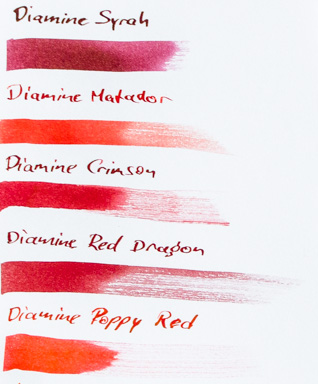 Diamine Syrah
Diamine Matador
Diamine Crimson
Diamine Red Dragon
Diamine Poppy Red